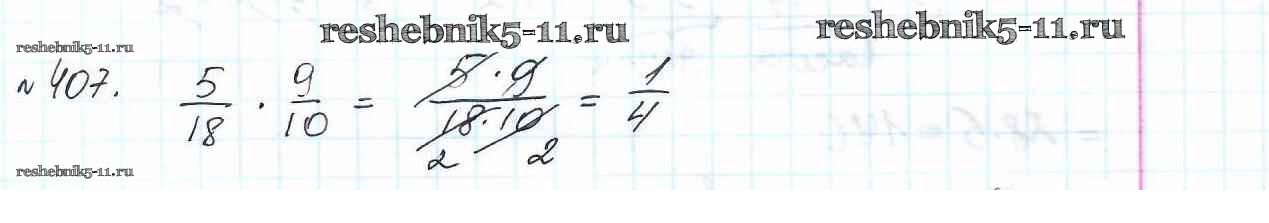 reshebnik5-11.ru reshebnik5-11.ru
reshebnik5-11.ru
№ 407. 5/18 · 9/10 = 5·9/18·10 = 1/4
2 2
reshebnik5-11.ru